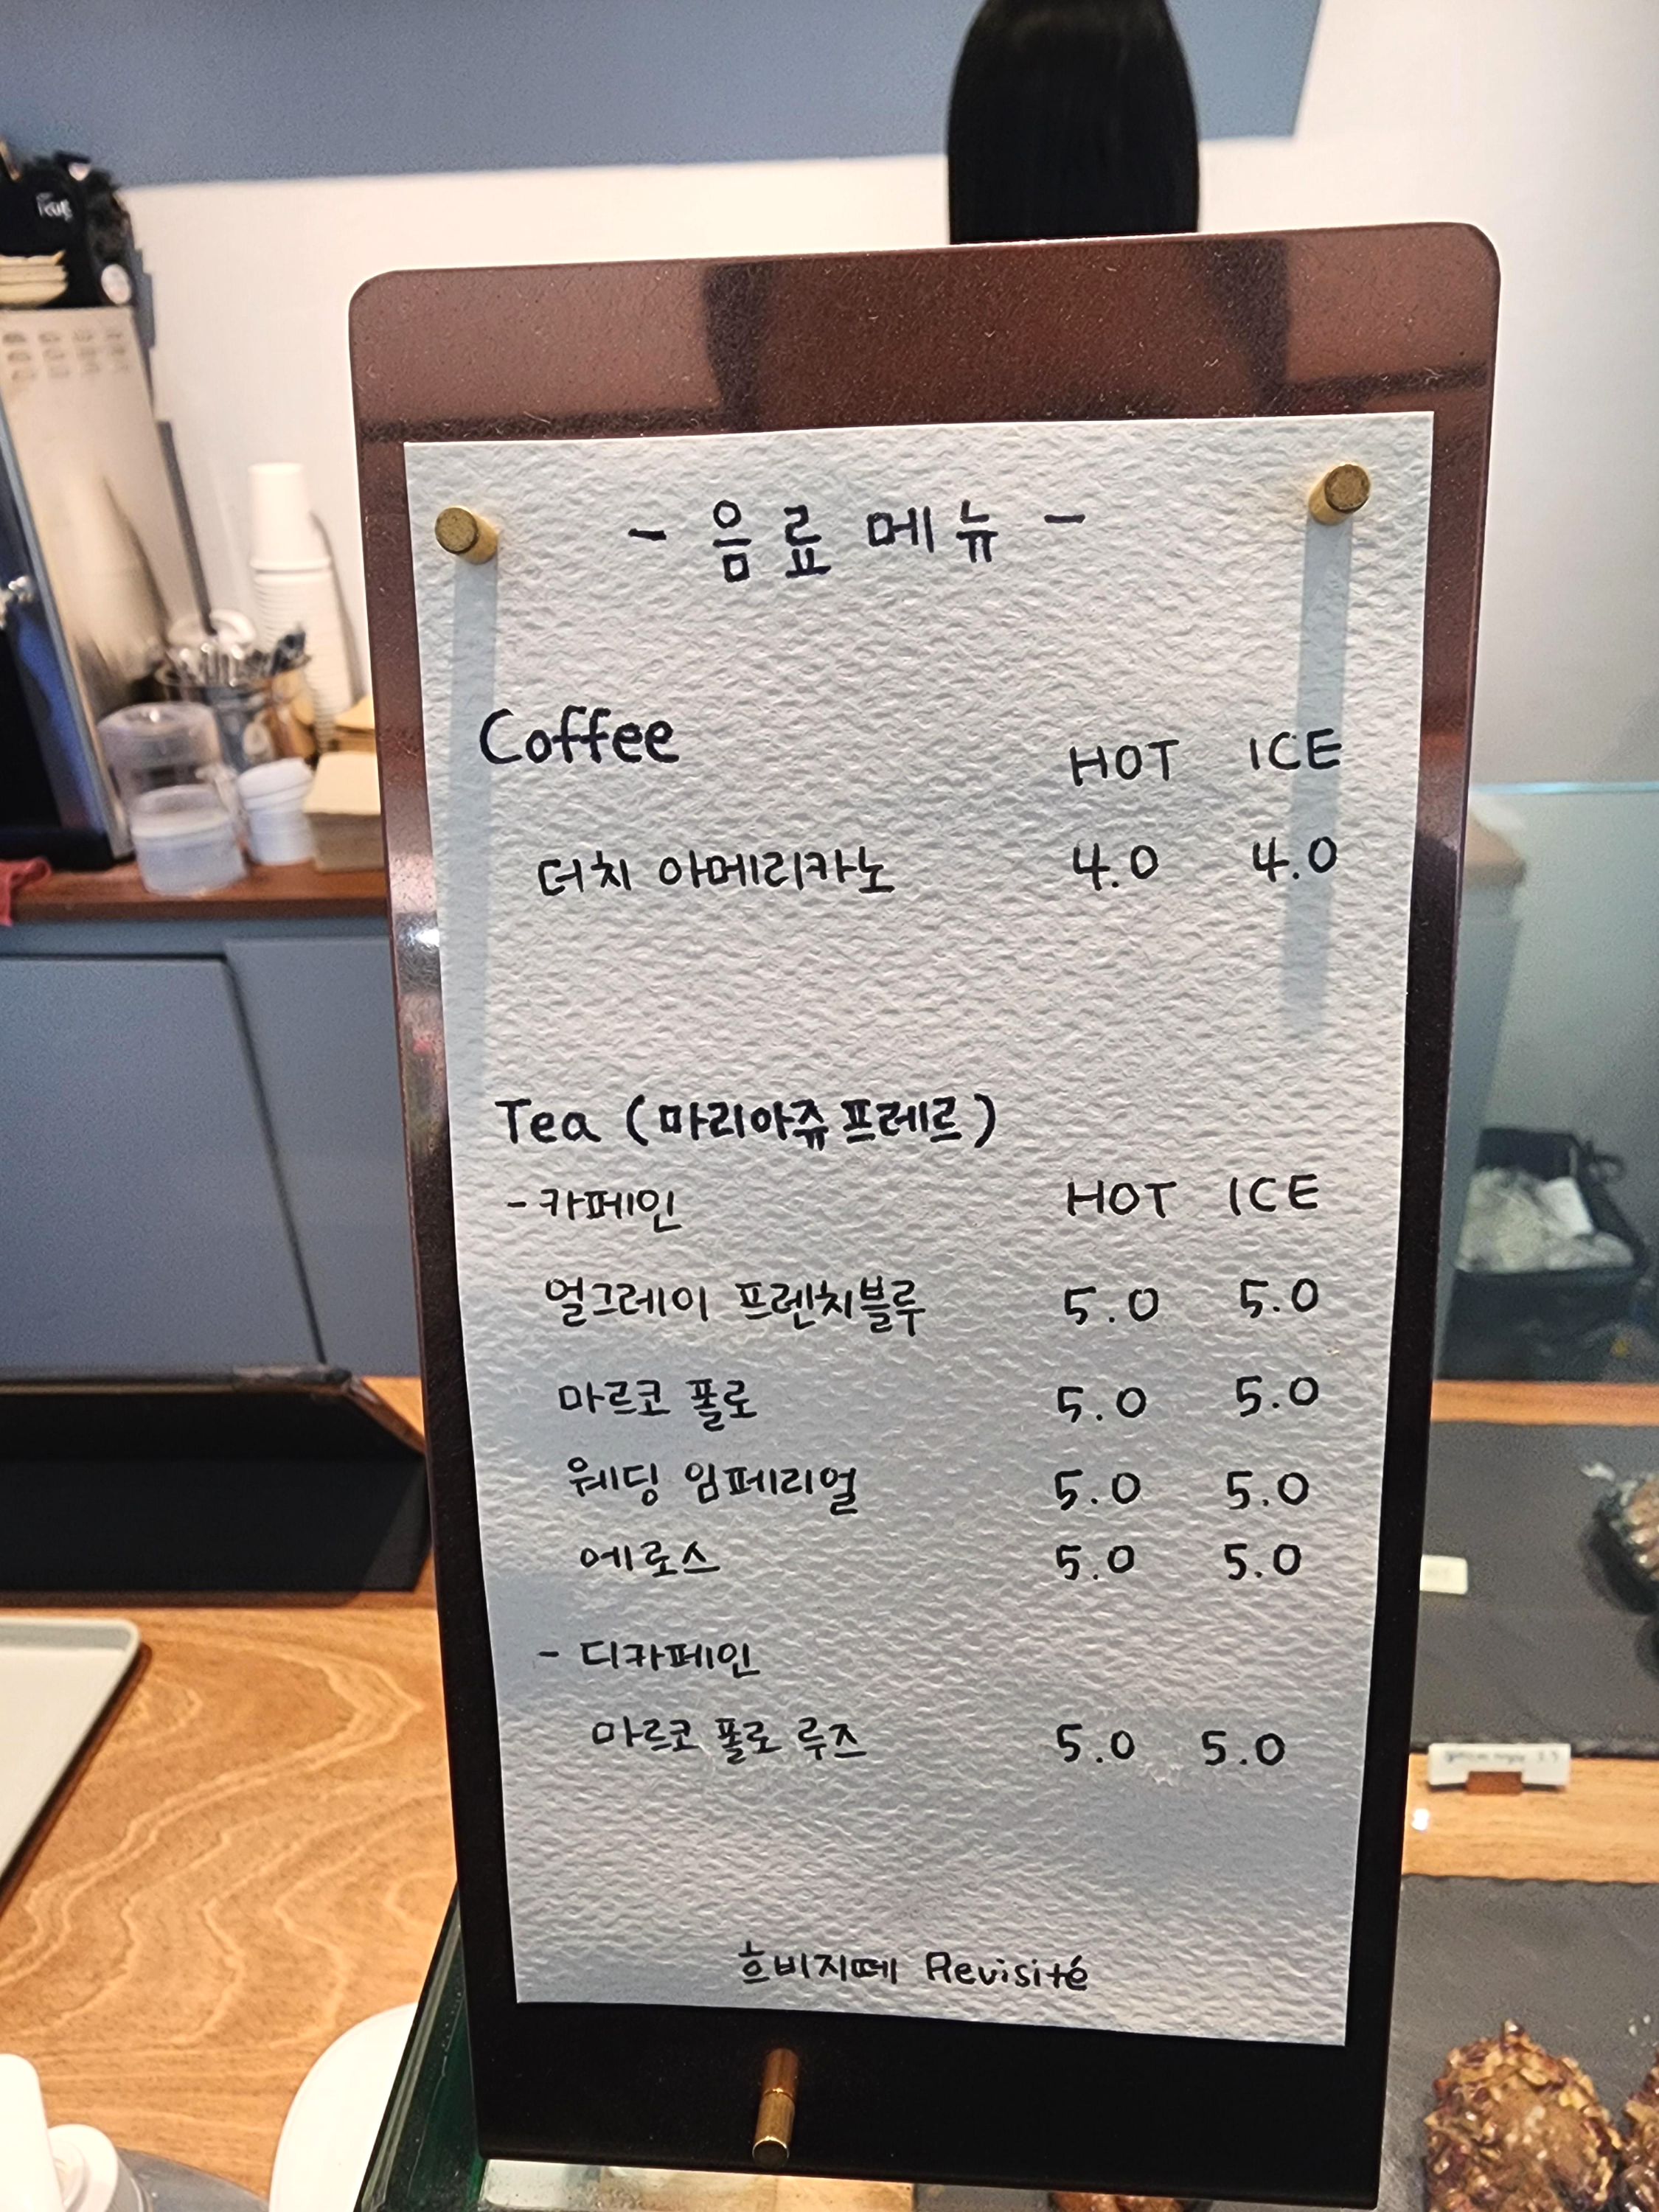 - 음료 메뉴 -
Coffee HOT ICE
더치 아메리카노 4.0 4.0
Tea (마리아쥬프레르)
- 카페인 HOT ICE
얼그레이 프렌치블루 5.0 5.0
마르코 폴로 5.0 5.0
웨딩 임페리얼 5.0 5.0
에로스 5.0 5.0
- 디카페인
마르코 폴로 루즈 5.0 5.0
흐비지떼 Revisité